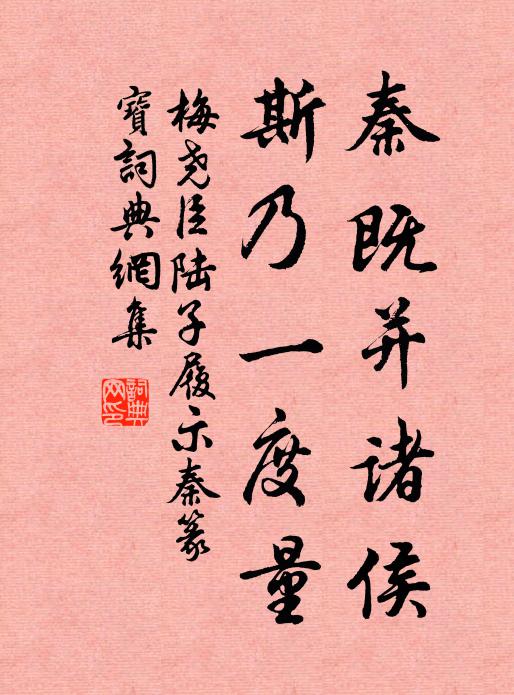 秦既并诸侯
斯乃一度量
梅尧臣陆子履示秦篆
寶詞典網集
詞典
网印